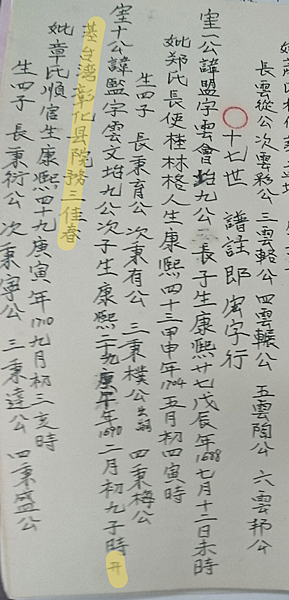 長雲從公 次雲彩公 三雲輅公 四雲公 五雲陶公 六雲邦公
十七世 譜註即宏字行
公諱盟字雲會 九公 長子生康熙廿七戊辰年1688七月十二日未時
妣郑氏長使桂林格人生康熙四十三甲申年1704五月初四寅時
生四子 長秉育公 次秉有公 三秉樸公出嗣 四秉梅公
十公諱盟字雲文九公次子生康熙二十九庚午年1690二月初九子時开
基台湾彰化县院務三佳春
妣章氏順官生康熙四十九庚寅年1710九月初三亥時
生四子 長秉衍公 次秉寧公 三秉達公 四秉盛公